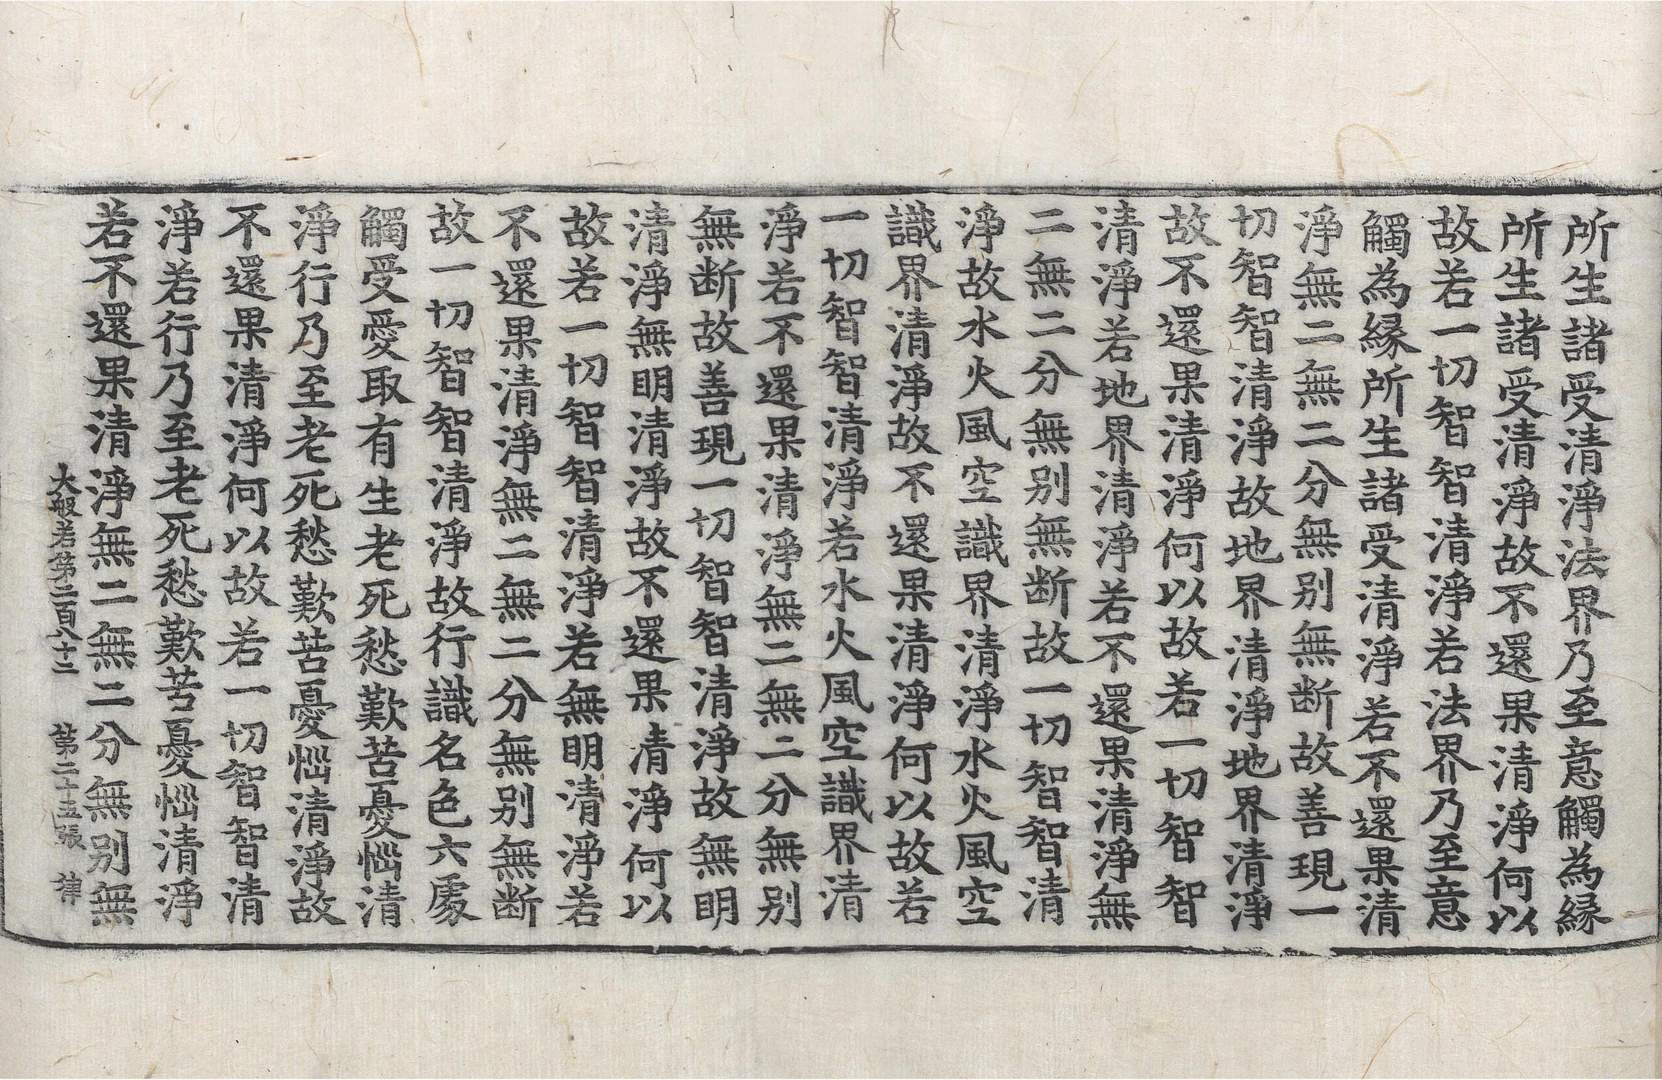 所生諸受清淨法界乃至意觸為縁
所生諸受清淨故不還果清淨何以
故若一切智智清淨若法界乃至意
觸為縁所生諸受清淨若不還果清
淨無二無二分無别無断故善現一
切智智清淨故地界清淨地界清淨
故不還果清淨何以故若一切智智
清淨若地界清淨若不還果清淨無
二無二分無别無断故一切智智清
淨故水火風空識界清淨水火風空
識界清淨故不還果清淨何以故若
一切智智清淨若水火風空識界清
淨若不還果清淨無二無二分無别
無断故善現一切智智清淨故無明
清淨無明清淨故不還果清淨何以
故若一切智智清淨若無明清淨若
不還果清淨無二無二分無别無断
故一切智智清淨故行識名色六處
觸受愛取有生老死愁歎苦憂惱清
淨行乃至老死愁歎苦憂惱清淨故
不還果清淨何以故若一切智智清
淨若行乃至老死愁歎苦憂惱清淨
若不還果清淨無二無二分無别無
大般若第二百八十二 第二十五張 律